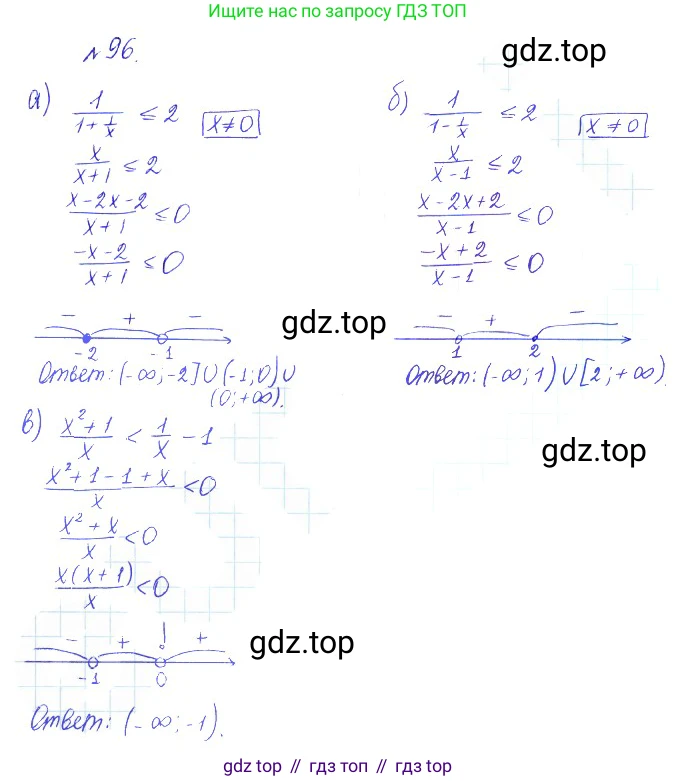 Ищите нас по запросу ГДЗ ТОП
№96.
gdz.top
а) 1/(1+1/x) ≤ 2 x≠0
x/(x+1) ≤ 2
(x-2x-2)/(x+1) ≤ 0
(-x-2)/(x+1) ≤ 0
- + -
-2 -1
Ответ: (-∞;-2]∪(-1;0)∪
(0;+∞).
б) 1/(1-1/x) ≤ 2 x≠0
x/(x-1) ≤ 2
(x-2x+2)/(x-1) ≤ 0
(-x+2)/(x-1) ≤ 0
gdz.top
- + -
1 2
Ответ: (-∞;1)∪[2;+∞).
в) (x²+1)/x < 1/x - 1
(x²+1-1+x)/x < 0
gdz.top
(x²+x)/x < 0
x(x+1)/x < 0
- + ! +
-1 0
gdz.top
Ответ: (-∞;-1).
gdz top // гдз топ // gdz top